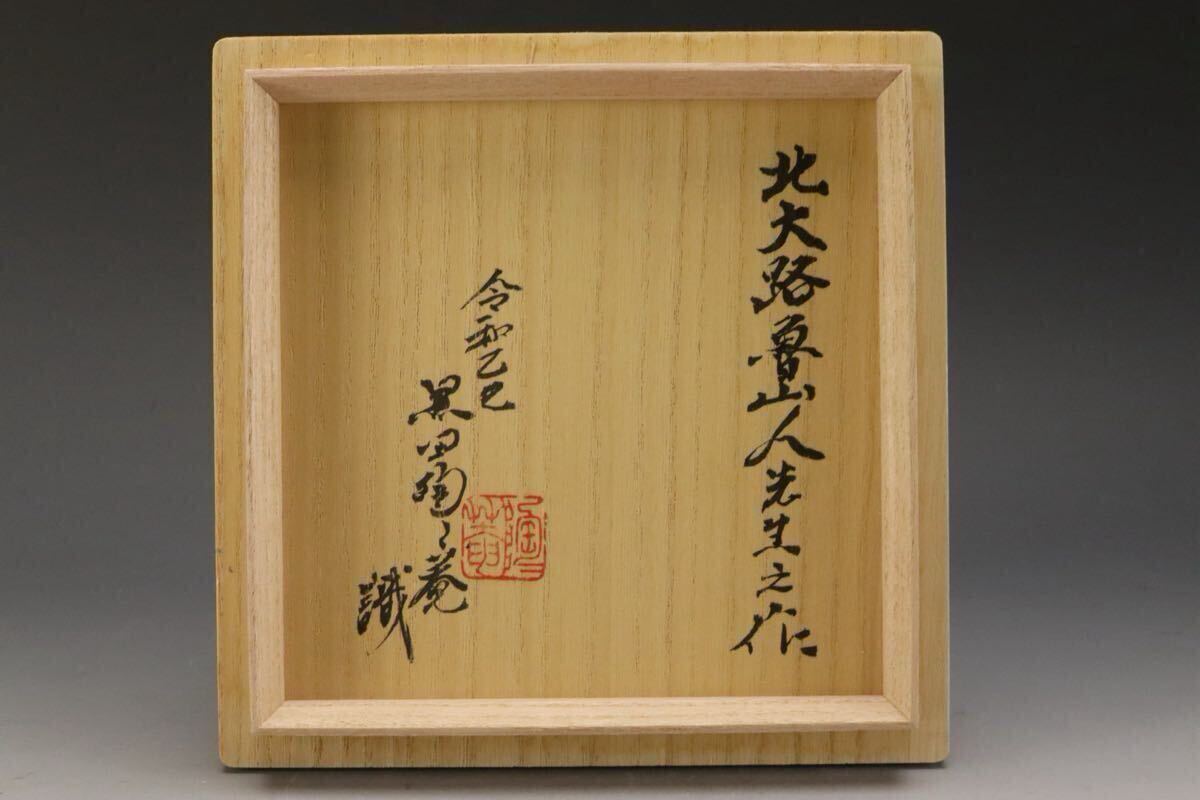 北大路魯山人先生之作
令和乙巳
黒田陶々菴
識
陶々菴